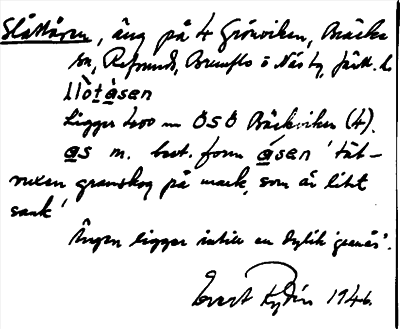 Slåttåsen, äng på 4 Grönviken, Bräcke
sn, Refsunds, Brunflo o Näs tg, Jämtl. l.
Ligger 1200 m OSO Bäckviken (4).
as m. best. form åsen 'tät-
vuxen granskog på mark, som är litet
sank'
Ängen ligger intill en dylik
Evert Rydén 1946.